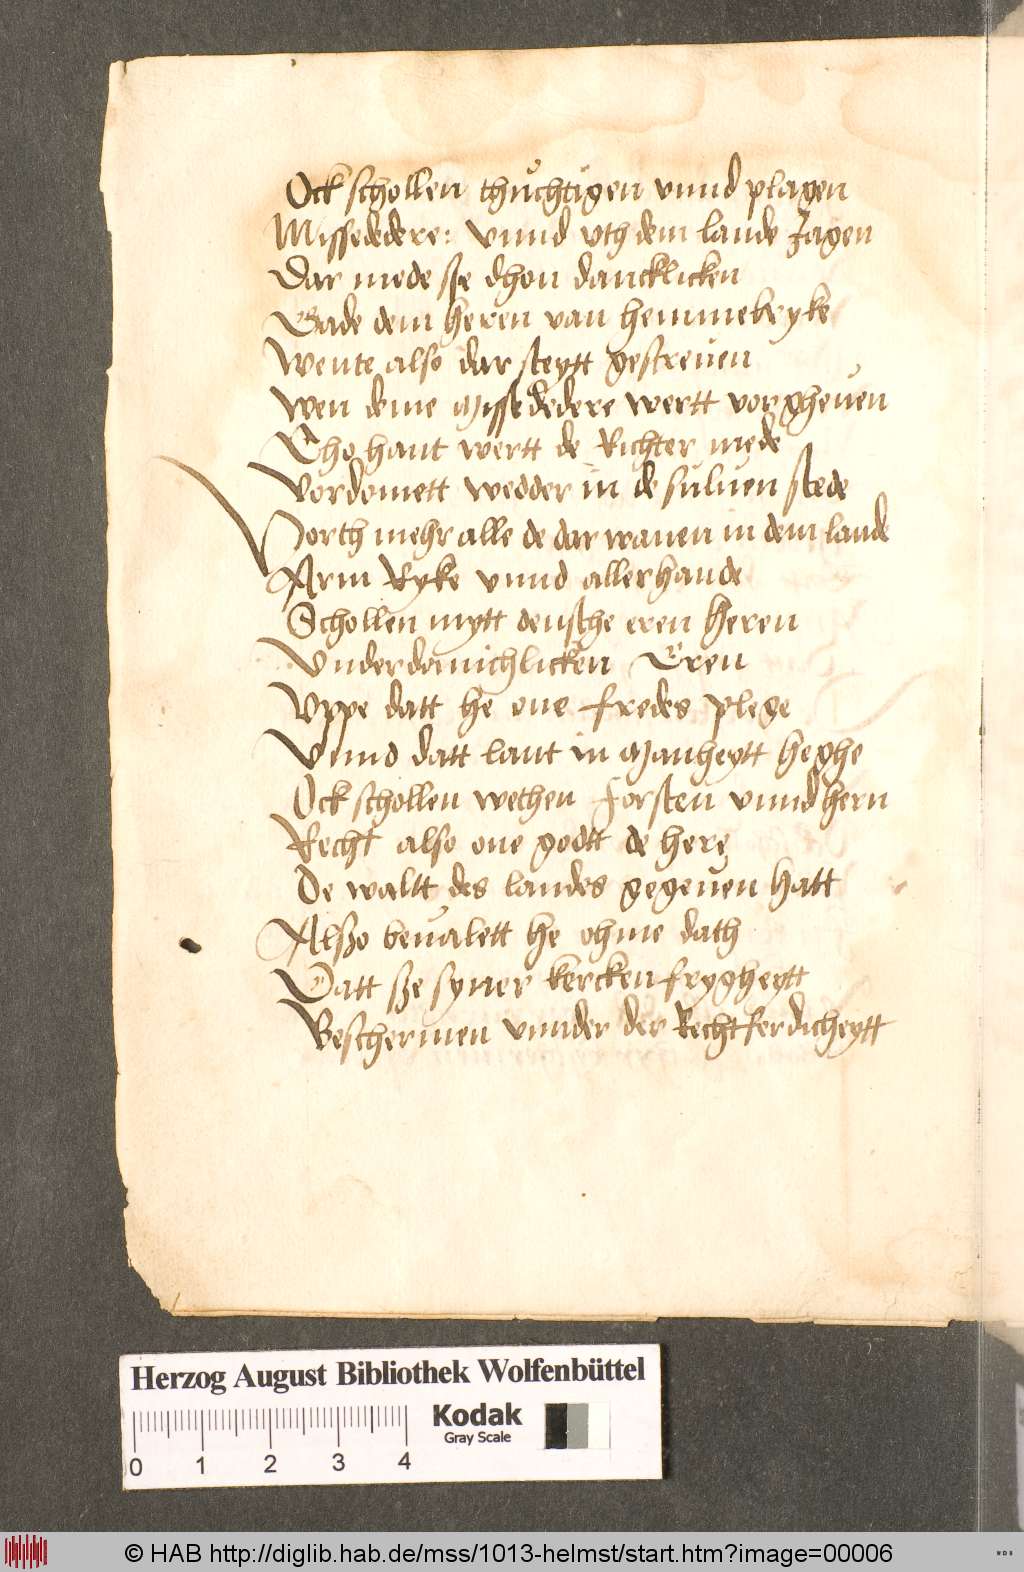 Ock schollen thuͦchtigen vnnd plagen
Missededere: vnnd vth dem lande Jagen
Dar mede sse dhon dancklicken
Gade dem heren van hemmelryke
Wente also dar steytt gescreuen
Wen deme Missededere wertt vorgheuen
Tho hant wertt de Richter mede
Vordomett wedder in de suluen stede
Vorth mehr alle de dar wanen in dem lande
Arm Ryke vnnd allerhande
Schollen mytt densthe eren Heren
Vnderdanichlicken Eren
Vppe datt he one fredes plege
Vnnd datt lant in Manheytt heghe
Ock schollen wethen forsten vnnd hern
Recht also one godtt de here
De waltt des landes gegeuen hatt
Alßo beualett he ohme dath
Datt ße syner kercken frygheytt
Beschermen vnnder der Rechtferdicheytt
Herzog August Bibliothek Wolfenbüttel
Kodak
Gray Scale
0 1 2 3 4
© HAB http://diglib.hab.de/mss/1013-helmst/start.htm?image=00006